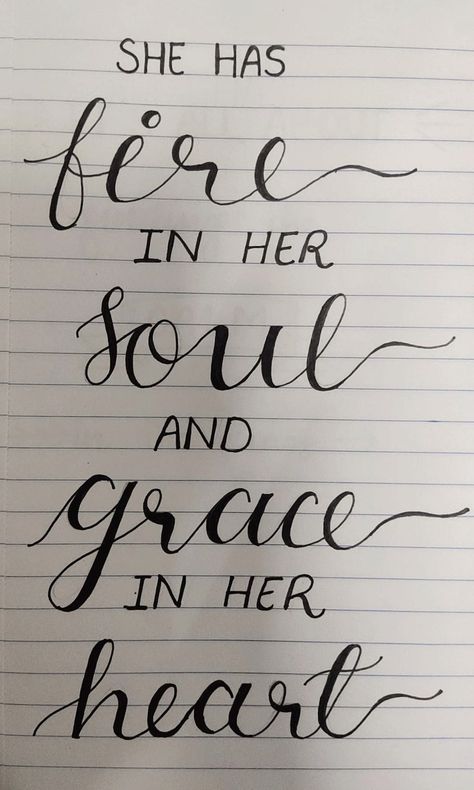 SHE HAS
fire
IN HER
soul
AND
grace
IN HER
heart